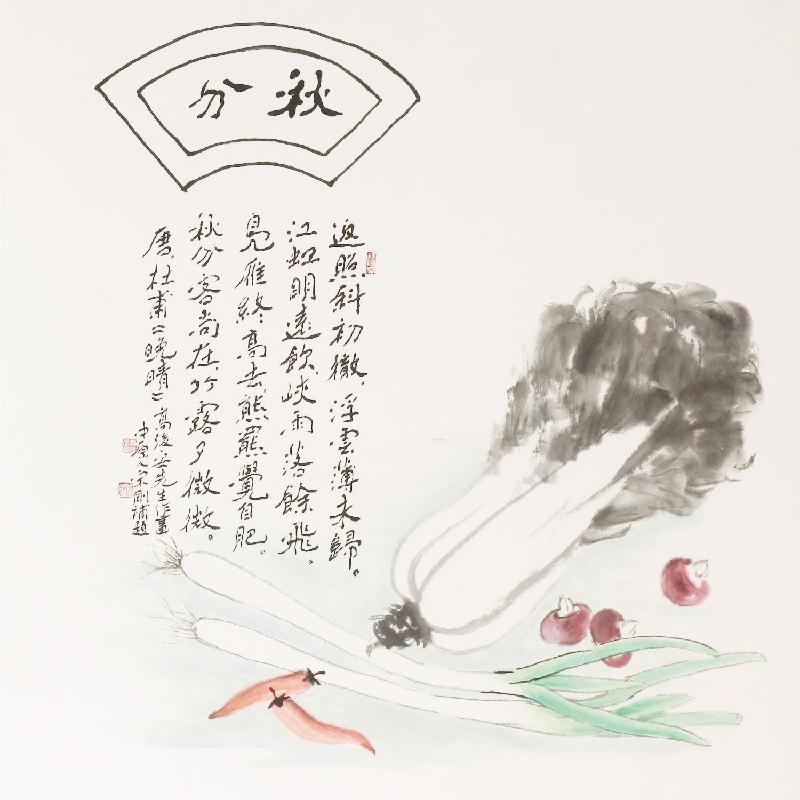 秋分
返照斜初徹，浮雲薄未歸。
江虹明遠飲峽雨落餘飛。
鳧雁終高去熊羆覺自肥。
秋分客尚在竹露夕微微。
唐、杜甫《晚晴》高安先生作畫
宋剛補題